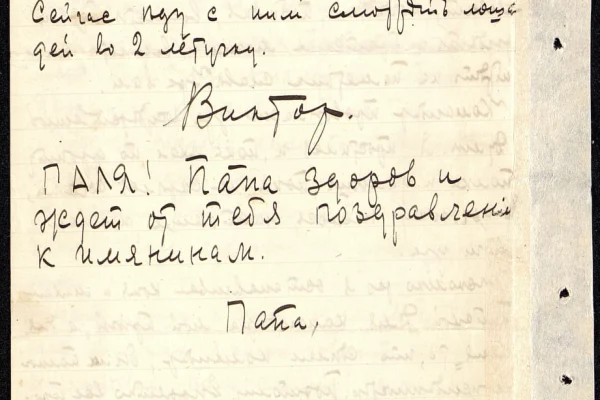 Сейчас иду с ним смотреть лоша
дей во 2 летучку.
Виктор.
ПАЛЯ! Папа здоров и
ждет от тебя поздравлени
к имянинам.
Папа,